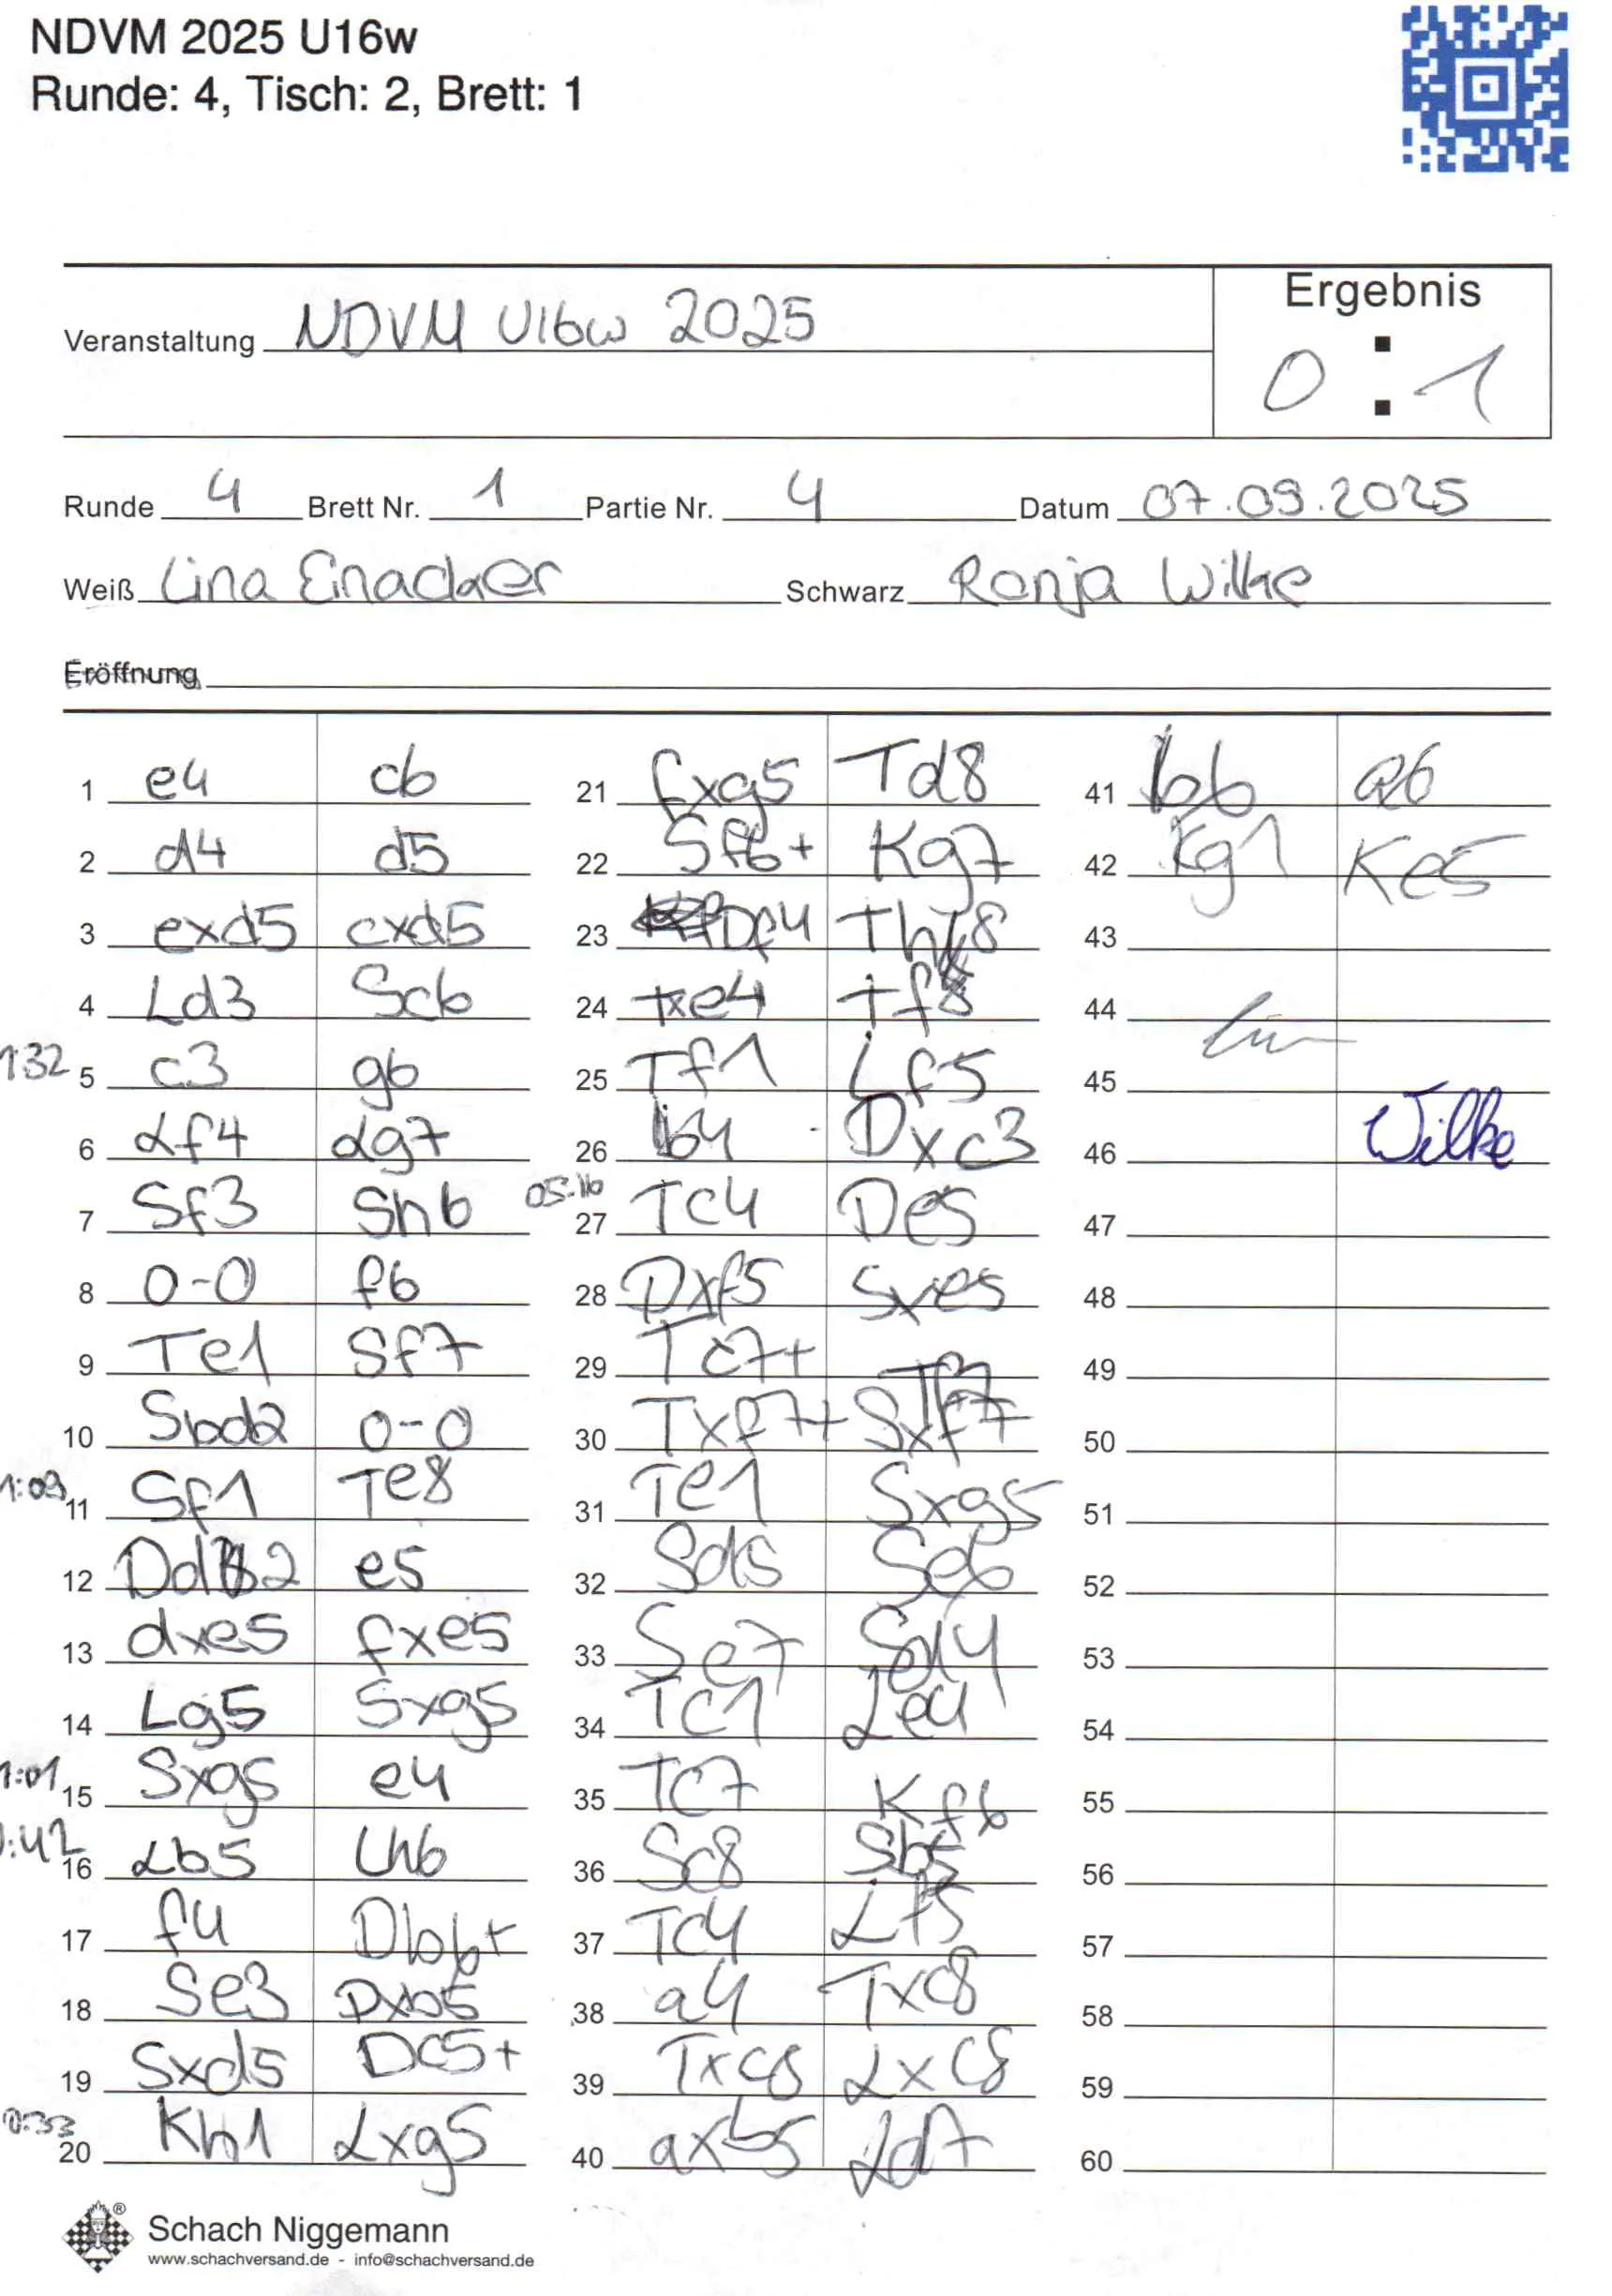 NDVM 2025 U16w
Runde: 4, Tisch: 2, Brett: 1
Ergebnis
Veranstaltung NDVM U16w 2025
0 : 1
Runde 4 Brett Nr. 1 Partie Nr. 4 Datum 07.09.2025
Weiß Lina Einacker Schwarz Ronja Wilke
Eröffnung
1 e4 c6
2 d4 d5
3 exd5 cxd5
4 Ld3 Sc6
1:32 5 c3 g6
6 Lf4 Lg7
7 Sf3 Sh6
8 0-0 f6
9 Te1 Sf7
10 Sbd2 0-0
1:09 11 Sf1 Te8
12 Dd2 e5
13 dxe5 fxe5
14 Lg5 Sxg5
1:01 15 Sxg5 e4
:42 16 Lb5 Lh6
17 f4 Db6+
18 Se3 Dxb5
19 Sxd5 Dc5+
0:33 20 Kh1 Lxg5
21 fxg5 Td8
22 Sf6+ Kg7
23 Df4 Th8
24 Txe4 Tf8
25 Tf1 Lf5
26 b4 Dxc3
05:16 27 Tc4 De5
28 Dxf5 Sxe5
29 Tc7+ Tf7
30 Txf7+ Sxf7
31 Te1 Sxg5
32 Sd5 Se6
33 Se7 Sd4
34 Tc1 Le4
35 Tc7 Kf6
36 Sc8 Sb5
37 Tc4 Lf5
38 a4 Txc8
39 Txc8 Lxc8
40 axb5 Ld7
41 b6 a6
42 Kg1 Ke5
43
44
45
46 Wilke
47
48
49
50
51
52
53
54
55
56
57
58
59
60
Schach Niggemann
www.schachversand.de - info@schachversand.de